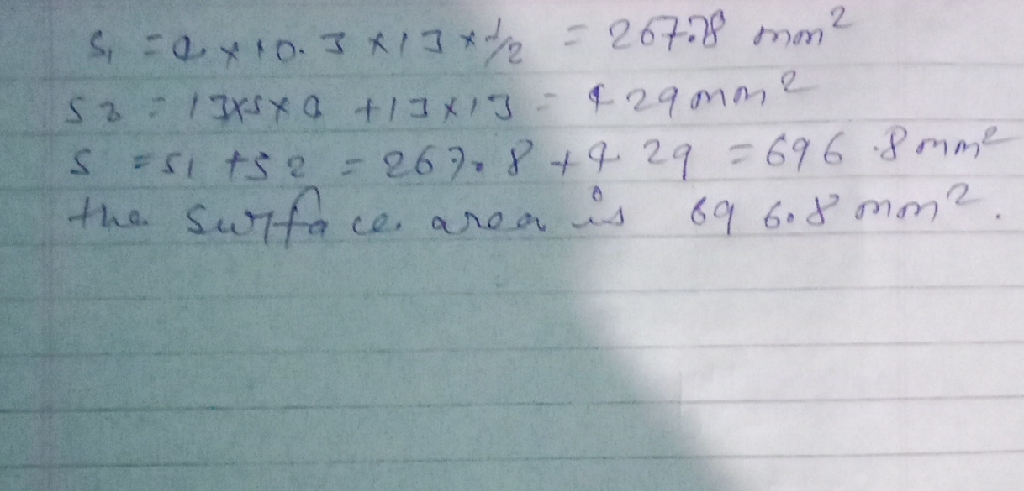 S₁ = 4 × 10.3 × 13 × 1/2 = 267.8 mm²
S2 = 13×5×4 + 13×13 = 429 mm²
S = S1 + S2 = 267.8 + 429 = 696.8 mm²
the surface area is 696.8 mm².